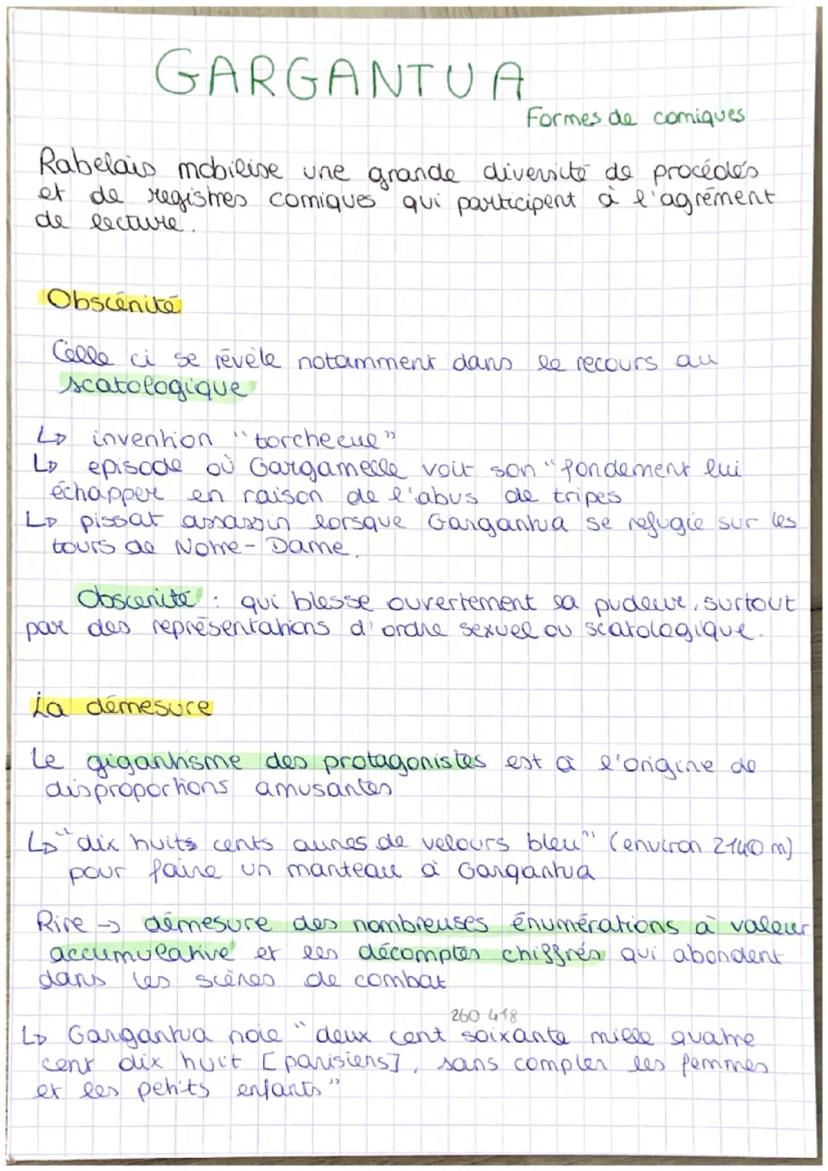 GARGANTUA
Formes de comiques
Rabelais mobilise une grande diversité de procédés
et de registres comiques qui participent à l'agrément
de lecture.
Obscénité
Celle ci se révèle notammenr dans le recours au
scatologique
↳ invention "torchecue"
↳ episode où Gargamelle voit son "fondement lui
échapper en raison de l'abus de tripes
↳ pissat assassin lorsque Gargantua se refugie sur les
tours de Notre-Dame.
Obscenité : qui blesse ouvertement la pudeur, surtout
par des représentations d'ordre sexuel ou scatologique.
La démesure
Le gigantisme des protagonistes est à l'origine de
disproportions amusantes
↳ "dix huits cents aunes de velours bleu" (environ 2140 m)
pour faire un manteau à Gargantua
Rire → démesure des nombreuses énumérations à valeur
accumulative et les décomptes chiffrés qui abondent
dans les scènes de combat
260 418
↳ Gargantua noie "deux cent soixante mille quatre
cent dix huit [parisiens], sans compter les femmes
et les petits enfants"